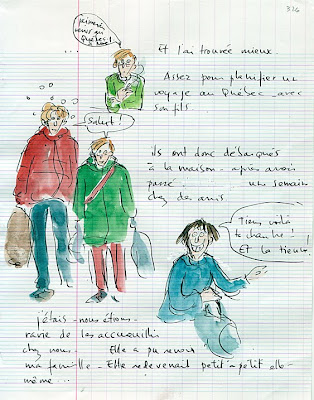 326
... Et l'ai trouvée mieux.
Assez pour planifier un
voyage au Québec avec
son fils.
Salut !
ils ont donc débarqués
à la maison - après avoir
passé ... une semaine
chez des amis.
Tiens voilà
ta chambre !
Et la tienne !
j'étais - nous étions -
ravie de les accueillir
chez nous. Elle a pu
ma famille - Elle redevenait petit à petit elle-
même...